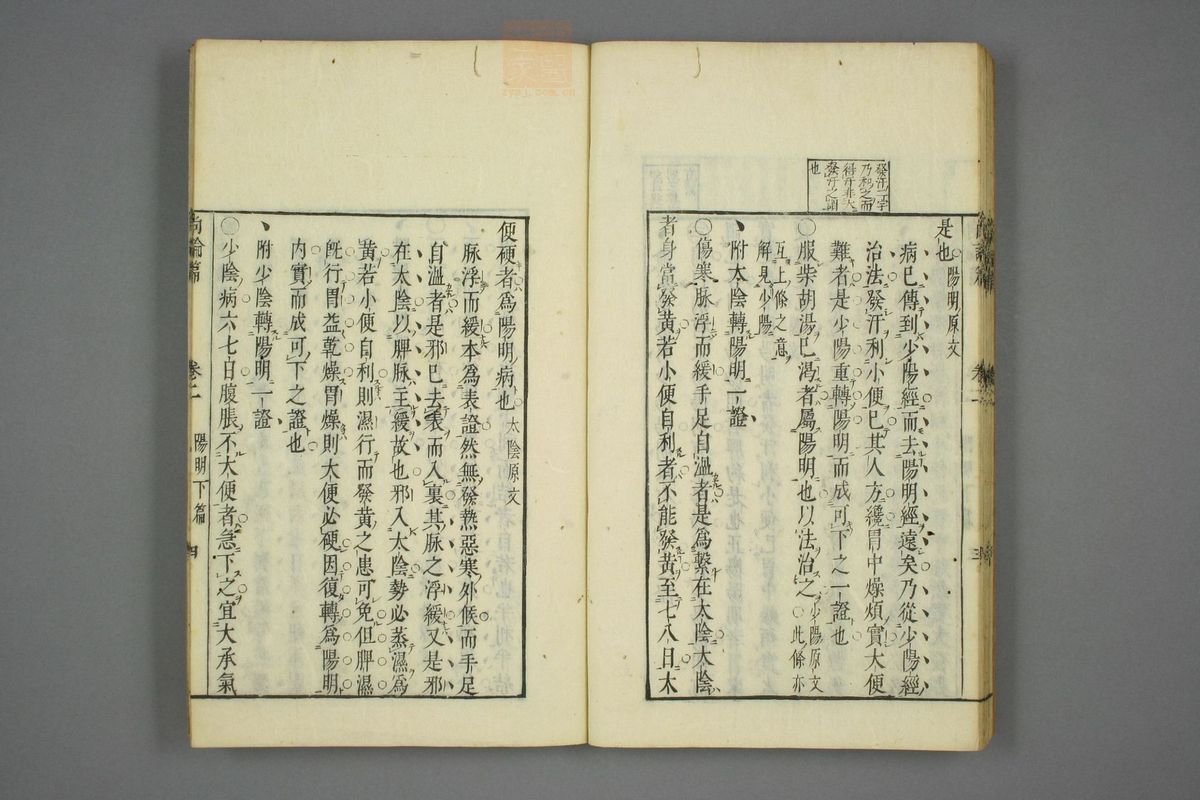 發汗二字
乃和之而
得汗非大
發汗之謂
也
是也陽明原文
病已傳到少陽經而去陽明經遠矣乃從少陽經
治法發汗利小便已其人方纔胃中燥煩實大便
難者是少陽重轉陽明而成可下之一證也
〇服柴胡湯已渴者屬陽明也以法治之少陽原文〇此條亦
互上條之意
解見少陽
附太陰轉陽明一證
〇傷寒脉浮而緩手足自溫者是爲繫在太陰太陰
者身當發黃若小便自利者不能發黃至七八日大
便硬者爲陽明病也太陰原文
脉浮而緩本爲表證然無發熱惡寒外候而手足
自溫者是邪已去表而入裏其脉之浮緩又是邪
在太陰以脾脉主緩故也邪入太陰勢必蒸濕爲
黃若小便自利則濕行而發黃之患可免但脾濕
旣行胃益乾燥胃燥則大便必硬因復轉爲陽明
内實而成可下之證也
附少陰轉陽明一證
〇少陰病六七日腹脹不大便者急下之宜大承氣
尚論篇 卷二 陽明下篇 四